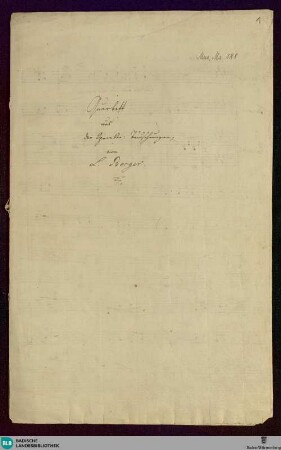 1
Mus. Hs. 181
Quartett
aus
der Operette: Täuschungen,
von
L. Berger.
BLB BADISCHE
LANDESBIBLIOTHEK
Baden-Württemberg